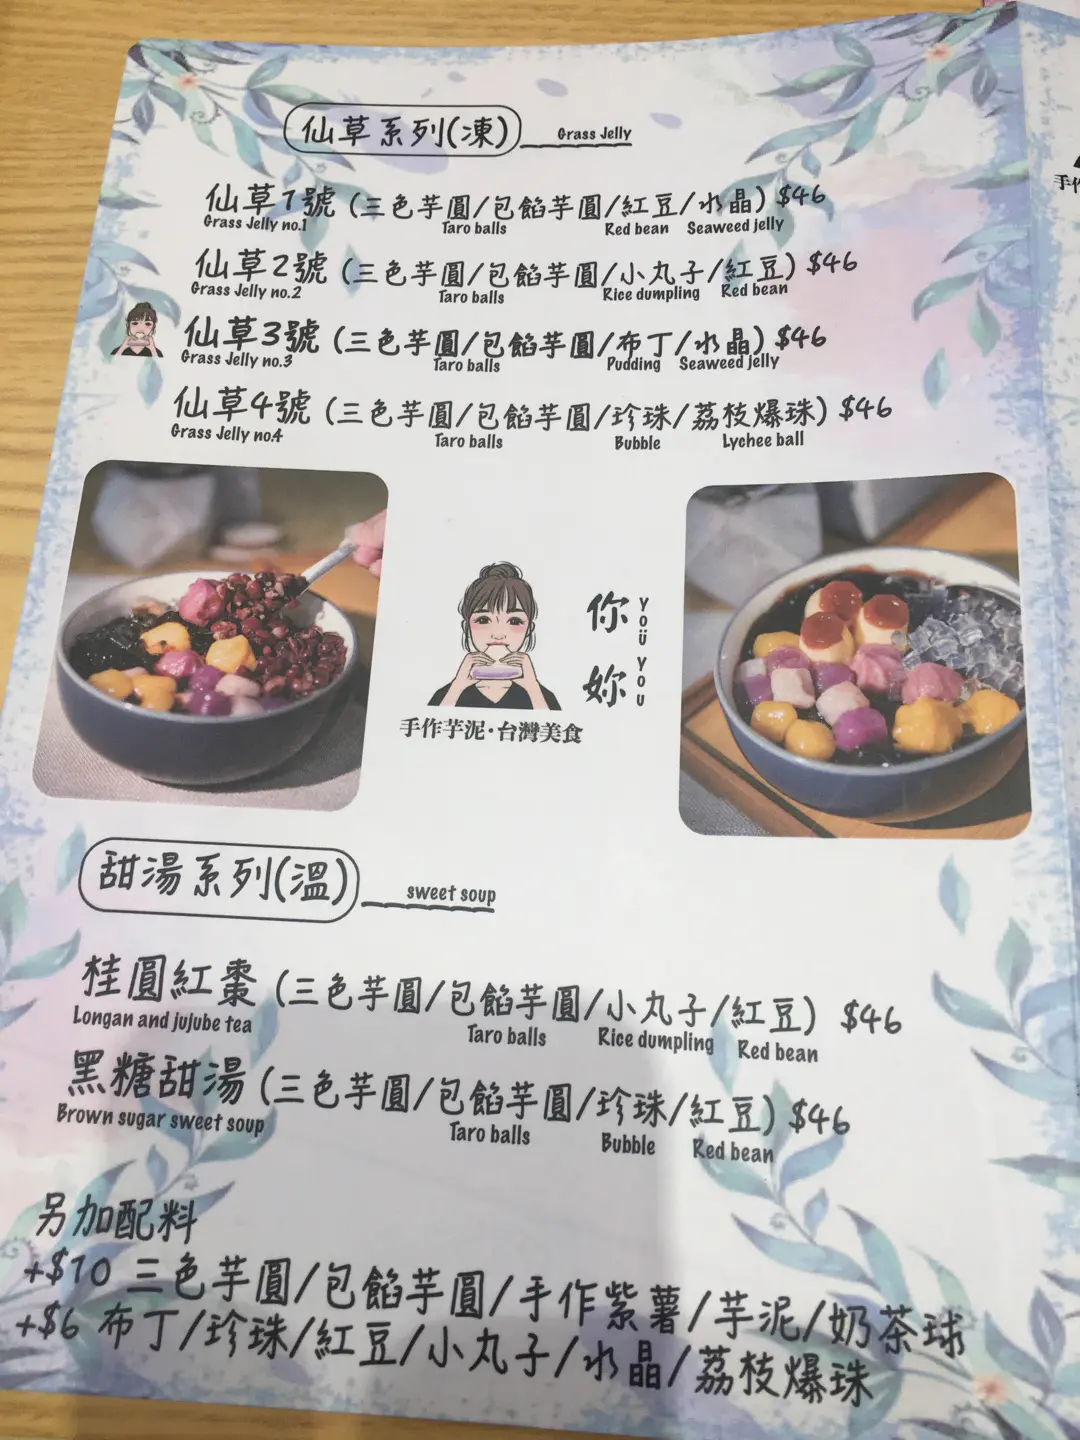 仙草系列(凍) Grass Jelly
仙草1號 (三色芋圓/包餡芋圓/紅豆/水晶) $46
Grass Jelly no.1 Taro balls Red bean Seaweed jelly
仙草2號 (三色芋圓/包餡芋圓/小丸子/紅豆) $46
Grass Jelly no.2 Taro balls Rice dumpling Red bean
仙草3號 (三色芋圓/包餡芋圓/布丁/水晶) $46
Grass Jelly no.3 Taro balls Pudding Seaweed jelly
仙草4號 (三色芋圓/包餡芋圓/珍珠/荔枝爆珠) $46
Grass Jelly no.4 Taro balls Bubble Lychee ball
你妳
YOÜ YOU
手作芋泥·台灣美食
甜湯系列(溫) sweet soup
桂圓紅棗 (三色芋圓/包餡芋圓/小丸子/紅豆) $46
Longan and jujube tea Taro balls Rice dumpling Red bean
黑糖甜湯 (三色芋圓/包餡芋圓/珍珠/紅豆) $46
Brown sugar sweet soup Taro balls Bubble Red bean
另加配料
+$10 三色芋圓/包餡芋圓/手作紫薯/芋泥/奶茶球
+$6 布丁/珍珠/紅豆/小丸子/水晶/荔枝爆珠